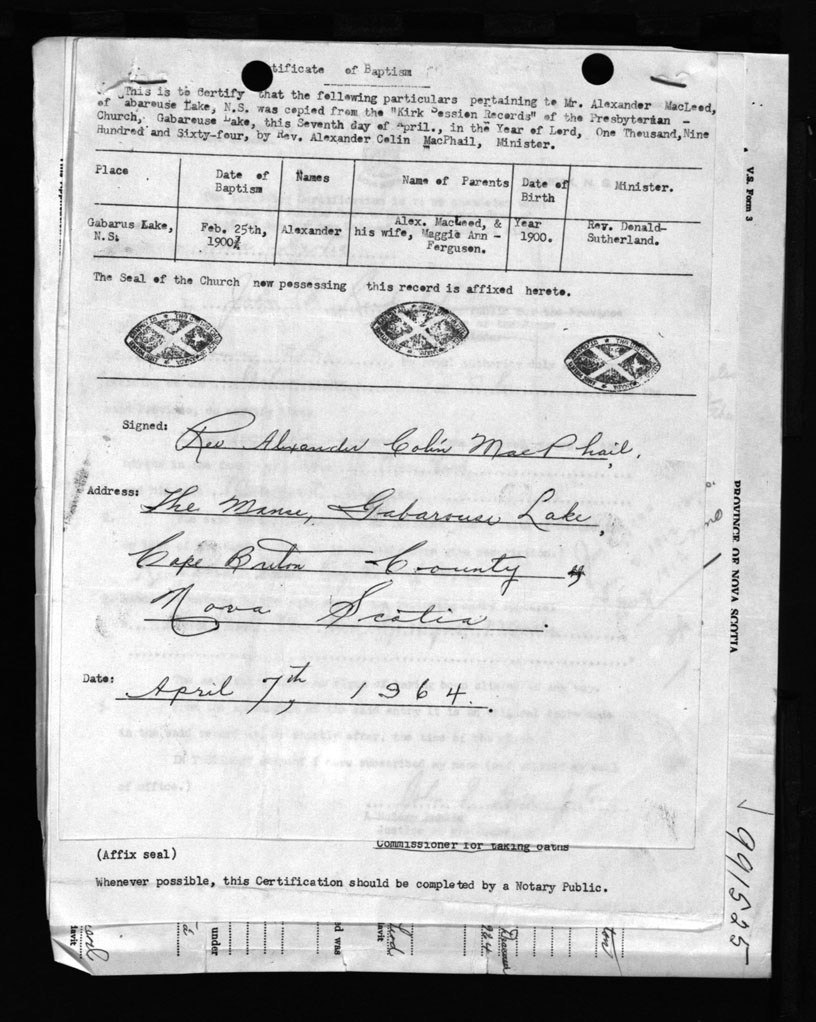 tificate of Baptism
This is to Certify that the following particulars pertaining to Mr. Alexander MacLeod,
of abarouse Lake, N.S. was copied from the "Kirk Session Records" of the Presbyterian -
Church, Gabarouse Lake, this Seventh day of April., in the Year of Lord, One Thousand, Nine
Hundred and Sixty-four, by Rev. Alexander Colin MacPhail, Minister.
Place Date of Baptism Names Name of Parents Date of Birth Minister.
Gabarus Lake, N.S. Feb. 25th, 1900 Alexander Alex. MacLeod, & his wife, Maggie Ann - Ferguson. Year 1900. Rev. Donald- Sutherland.
The Seal of the Church now possessing this record is affixed hereto.
Signed: Rev Alexander Colin MacPhail,
Address: The Manse, Gabarouse Lake,
Cape Breton County,
Nova Scotia.
Date: April 7th, 1964.
Commissioner for taking oaths
(Affix seal)
Whenever possible, this Certification should be completed by a Notary Public.
V.S. Form 3
PROVINCE OF NOVA SCOTIA
991525
under
d was